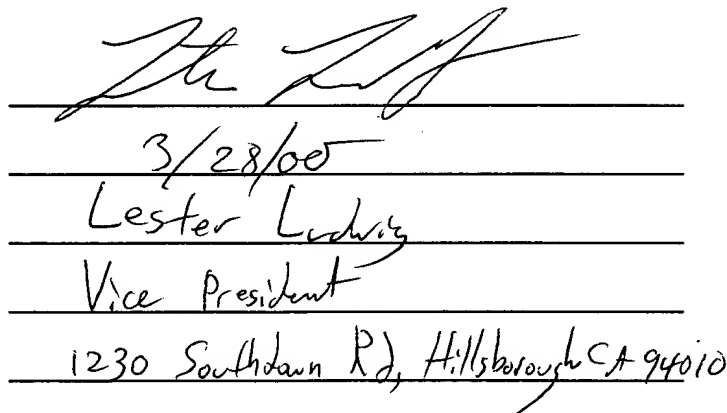 3/28/00
Lester Ludwig
Vice President
1230 Southdown Rd, Hillsborough CA 94010